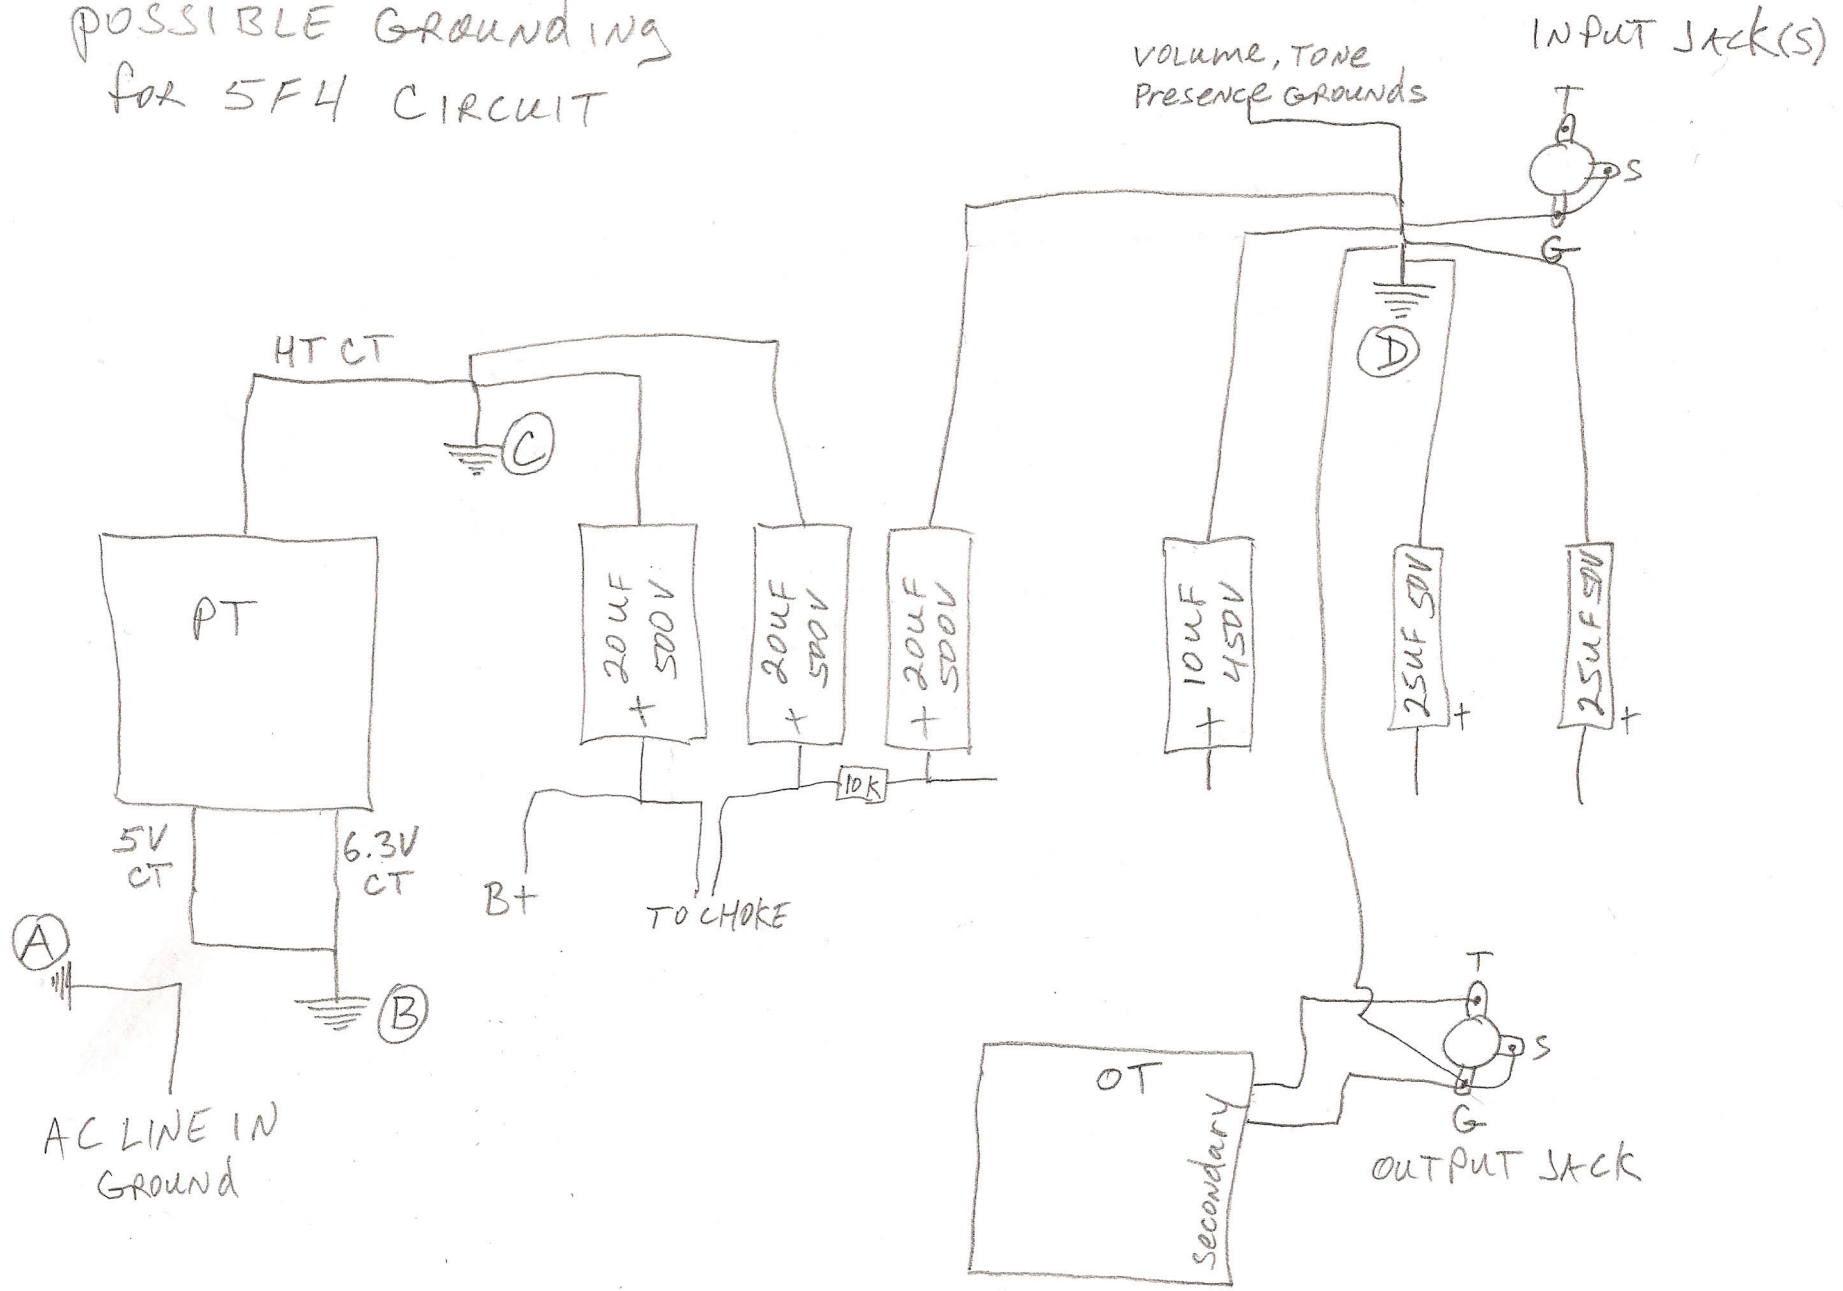 POSSIBLE GROUNDING
FOR 5F4 CIRCUIT
VOLUME, TONE
Presence GROUNDS
INPUT JACK(S)
T
S
G
D
HT CT
C
PT
20UF
500V
+
20UF
500V
+
20UF
500V
+
10UF
450V
+
25UF 50V
+
25UF 50V
+
10K
5V
CT
6.3V
CT
B+
TO CHOKE
A
B
AC LINE IN
GROUND
OT
secondary
T
S
G
OUTPUT JACK